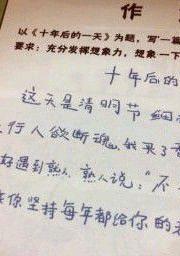 作
以《十年后的一天》为题,写一篇
要求:充分发挥想象力,想象一下
十年后的
这天是清明节 细
行人欲断魂,我买了香
好遇到熟人,熟人说:"不
你坚持每年都给你的老